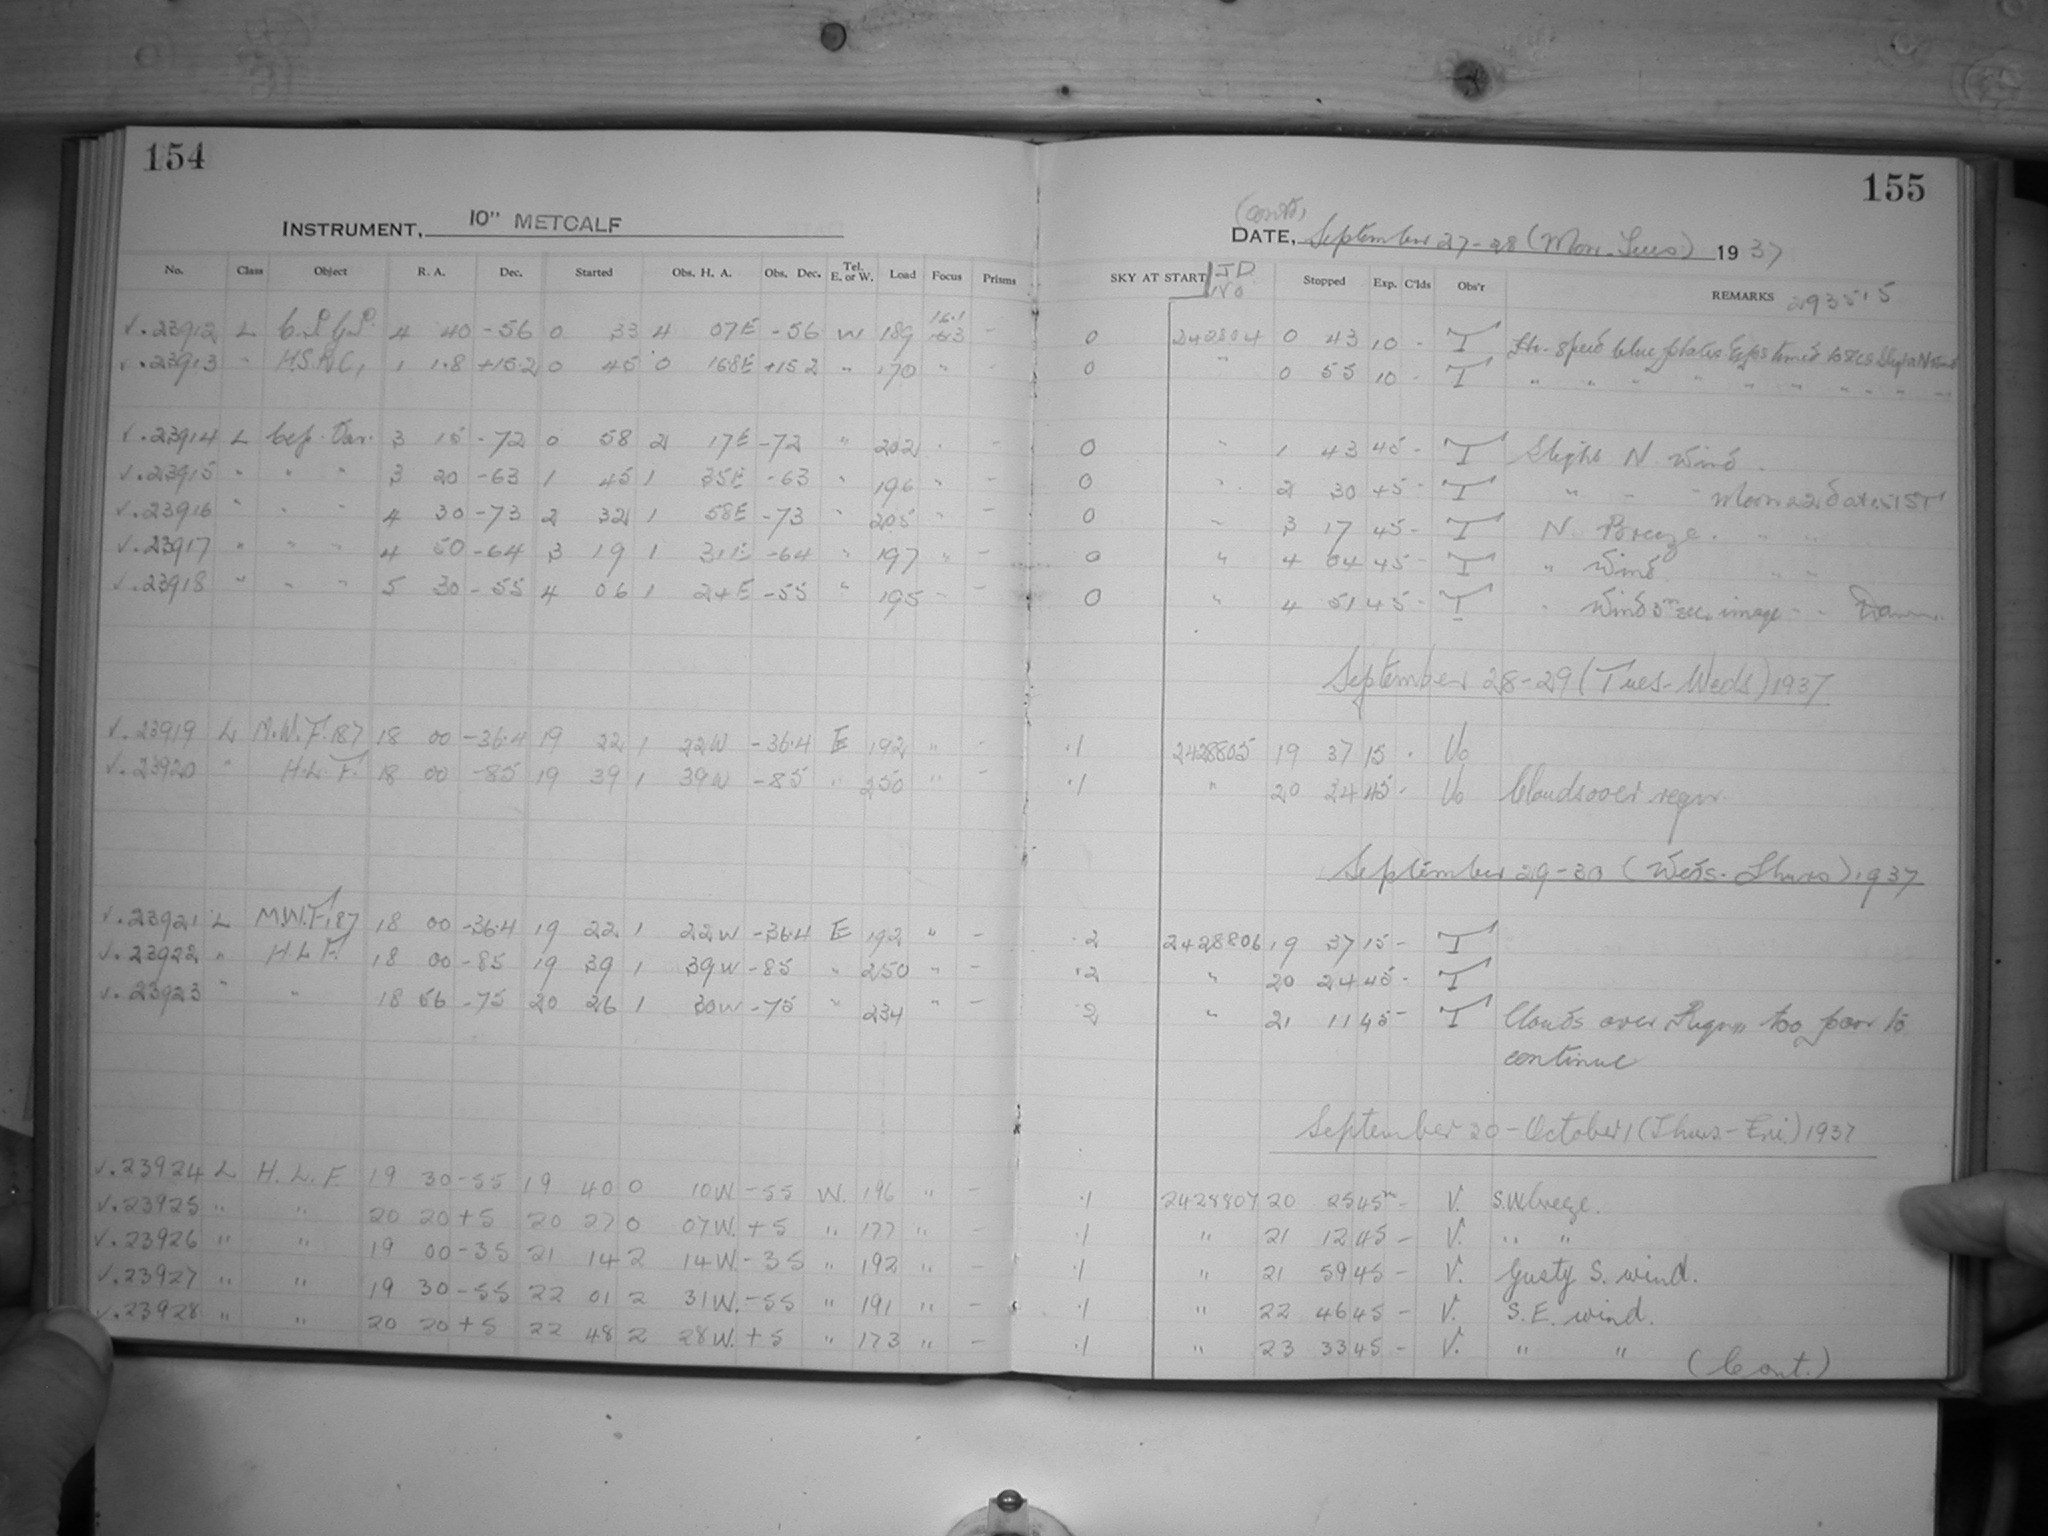 154
INSTRUMENT, 10" METCALF
No. Class Object R. A. Dec. Started Obs. H. A. Obs. Dec. Tel. E. or W. Load Focus Prisms
√.23912 L 4 40 -56 0 33 4 07E -56 W 189 16.1 -
√.23913 " 1 1.8 +15.2 0 45 0 +15.2 " 170 " -
√.23914 L Cep. Var. 3 15 -72 0 58 2 17E -72 " 202 -
√.23915 " " " 3 20 -63 1 45 1 35E -63 " 196 " -
√.23916 " " " 4 30 -73 2 32 1 58E -73 " 205 " -
√.23917 " " " 4 50 -64 3 19 1 31E -64 " 197 " -
√.23918 " " " 5 30 -55 4 06 1 24E -55 " 195 " -
√.23919 L M.W.F. 187 18 00 -36.4 19 22 1 22W -36.4 E 192 " -
√.23920 " H.L.F. 18 00 -85 19 39 1 39W -85 " 250 " -
√.23921 L M.W.F. 187 18 00 -36.4 19 22 1 22W -36.4 E 192 " -
√.23922 " H L F. 18 00 -85 19 39 1 39W -85 " 250 " -
√.23923 " " 18 56 -75 20 26 1 30W -75 " 234 " -
√.23924 L H.L.F 19 30 -55 19 40 0 10W -55 W. 196 " -
√.23925 " " 20 20 +5 20 27 0 07W. +5 " 177 " -
√.23926 " " 19 00 -35 21 14 2 14W -35 " 192 " -
√.23927 " " 19 30 -55 22 01 2 31W. -55 " 191 " -
√.23928 " " 20 20 +5 22 48 2 28W. +5 " 173 " -
155
(Contd)
DATE, September 27-28 (Mon-Tues) 1937
SKY AT START J.D. Stopped Exp. C'lds Obs'r REMARKS
0 242804 0 43 10 - T
0 " 0 55 10 - T
0 " 1 43 45 - T Slight N. Wind.
0 " 2 30 45 - T " - "
0 " 3 17 45 - T N. Breeze. " "
0 " 4 04 45 - T " Wind. " "
0 " 4 51 45 - T " Wind image " " Dawn.
September 28-29 (Tues-Weds) 1937
.1 2428805 19 37 15 . Vo
.1 " 20 24 45 - Vo Clouds over region.
September 29-30 (Weds-Thurs) 1937
.2 2428806 19 37 15 - T
.2 " 20 24 45 - T
.2 " 21 11 45 - T Clouds over Region too poor to
continue
September 20 - October 1 (Thurs-Fri.) 1937
.1 2428807 20 25 45m - V. S.W. breeze.
.1 " 21 12 45 - V. " "
.1 " 21 59 45 - V. Gusty S. wind.
.1 " 22 46 45 - V. S.E. wind.
.1 " 23 33 45 - V. " "
(Cont.)